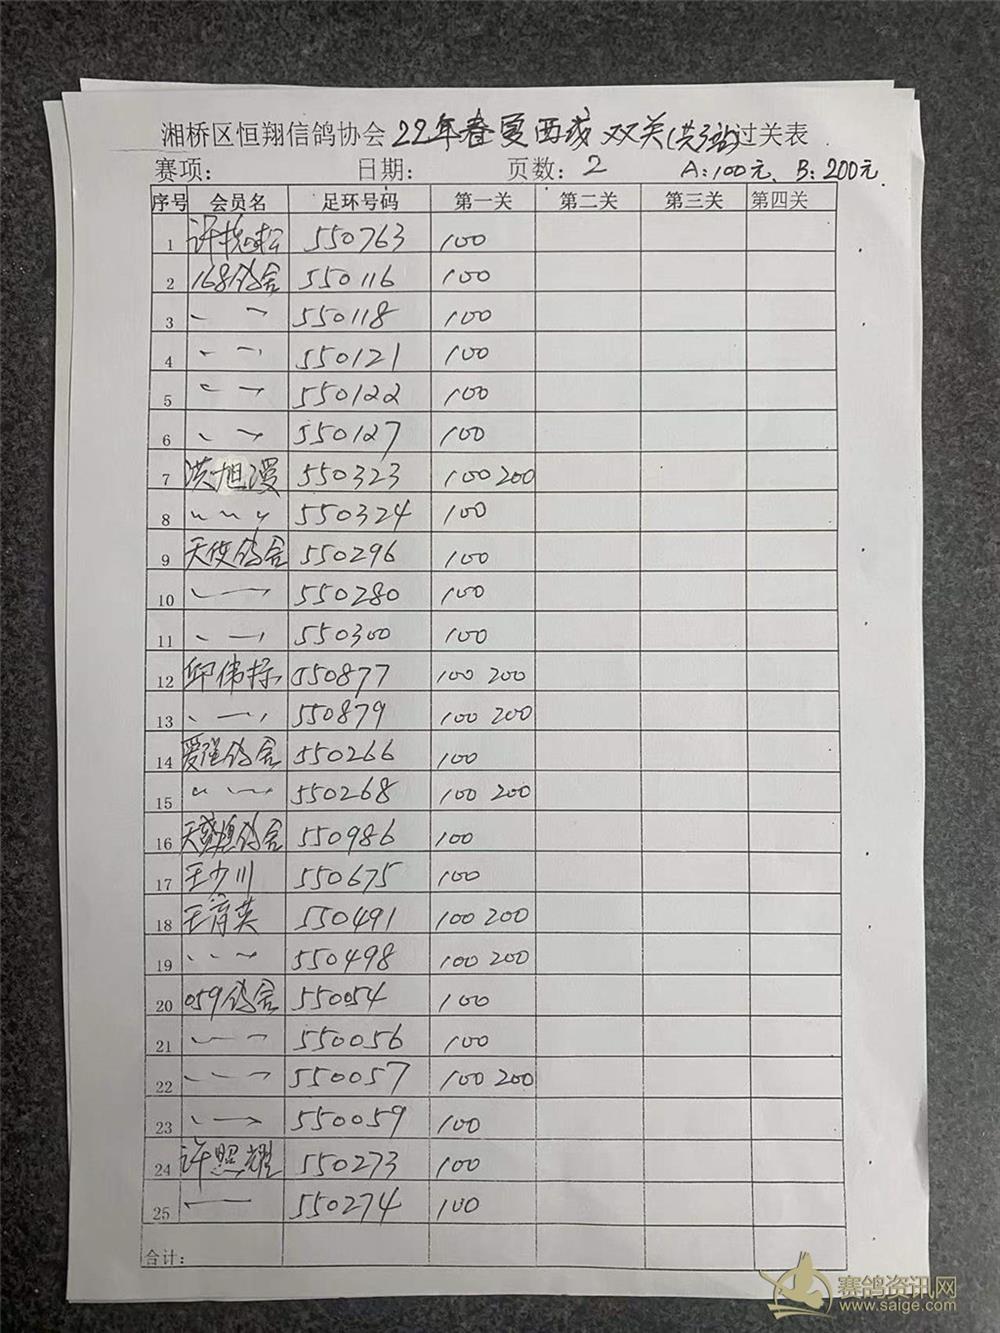 湘桥区恒翔信鸽协会22年春夏西线双关(共3站)过关表
赛项: 日期: 页数: 2 A:100元、B:200元.
序号 会员名 足环号码 第一关 第二关 第三关 第四关
1 许 550763 100
2 168鸽舍 550116 100
3 550118 100
4 550121 100
5 550122 100
6 550127 100
7 洪旭漫 550323 100 200
8 〃 〃 〃 550324 100
9 天使鸽舍 550296 100
10 550280 100
11 550300 100
12 邱伟标 550877 100 200
13 550879 100 200
14 爱强鸽舍 550266 100
15 550268 100 200
16 鸽舍 550986 100
17 王少川 550675 100
18 王育英 550491 100 200
19 550498 100 200
20 059鸽舍 550054 100
21 550056 100
22 550057 100 200
23 550059 100
24 许照耀 550273 100
25 550274 100
合计:
赛鸽资讯网
www.saige.com